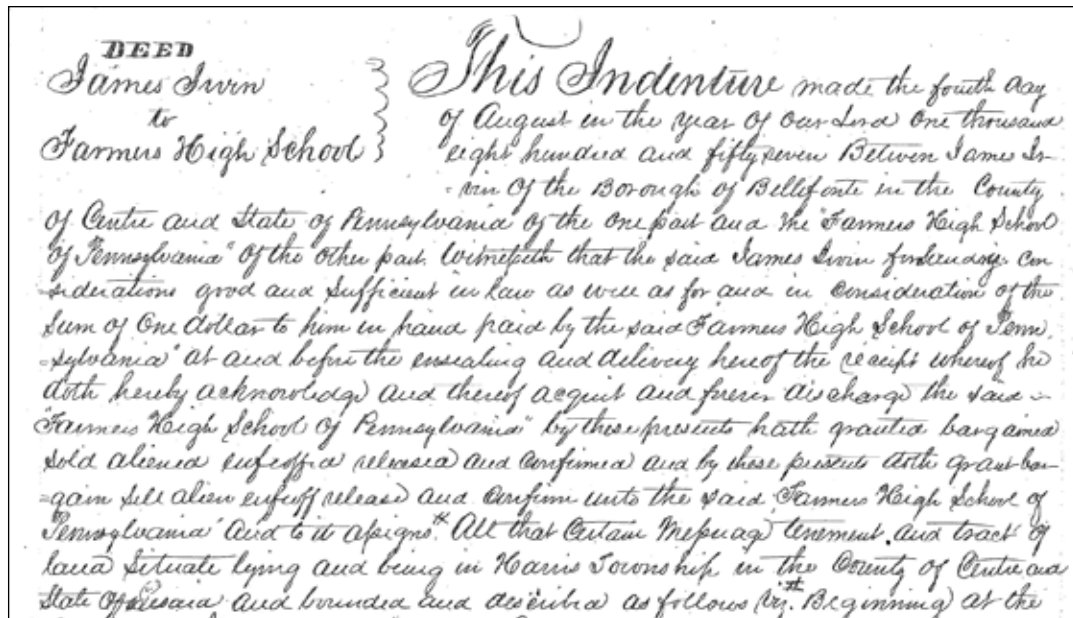 DEED
James Irvin
to
Farmers High School
This Indenture made the fourth day
of August in the year of our Lord One thousand
eight hundred and fifty seven Between James Ir-
-vin Of the Borough of Bellefonte in the County
of Centre and State of Pennsylvania of the One part and the "Farmers High School
of Pennsylvania" Of the Other part. Witnesseth that the said James Irvin for con
-siderations good and Sufficient in law as well as for and in consideration of the
Sum of One dollar to him in hand paid by the said Farmers High School of Penn
-sylvania" at and before the ensealing and delivery hereof the receipt whereof he
doth hereby acknowledge and thereof acquit and forever discharge the said -
"Farmers High School Of Pennsylvania" by these presents hath granted bargained
Sold aliened enfeoffed released and Confirmed and by these presents doth grant bar-
-gain Sell alien enfeoff release and Confirm unto the said Farmers High School of
Pennsylvania" And to it assigns* All that Certain Messuage tenement. and tract of
land Situate lying and being in Harris Township in the County of Centre and
State and bounded and described as follows (viz. Beginning) at the